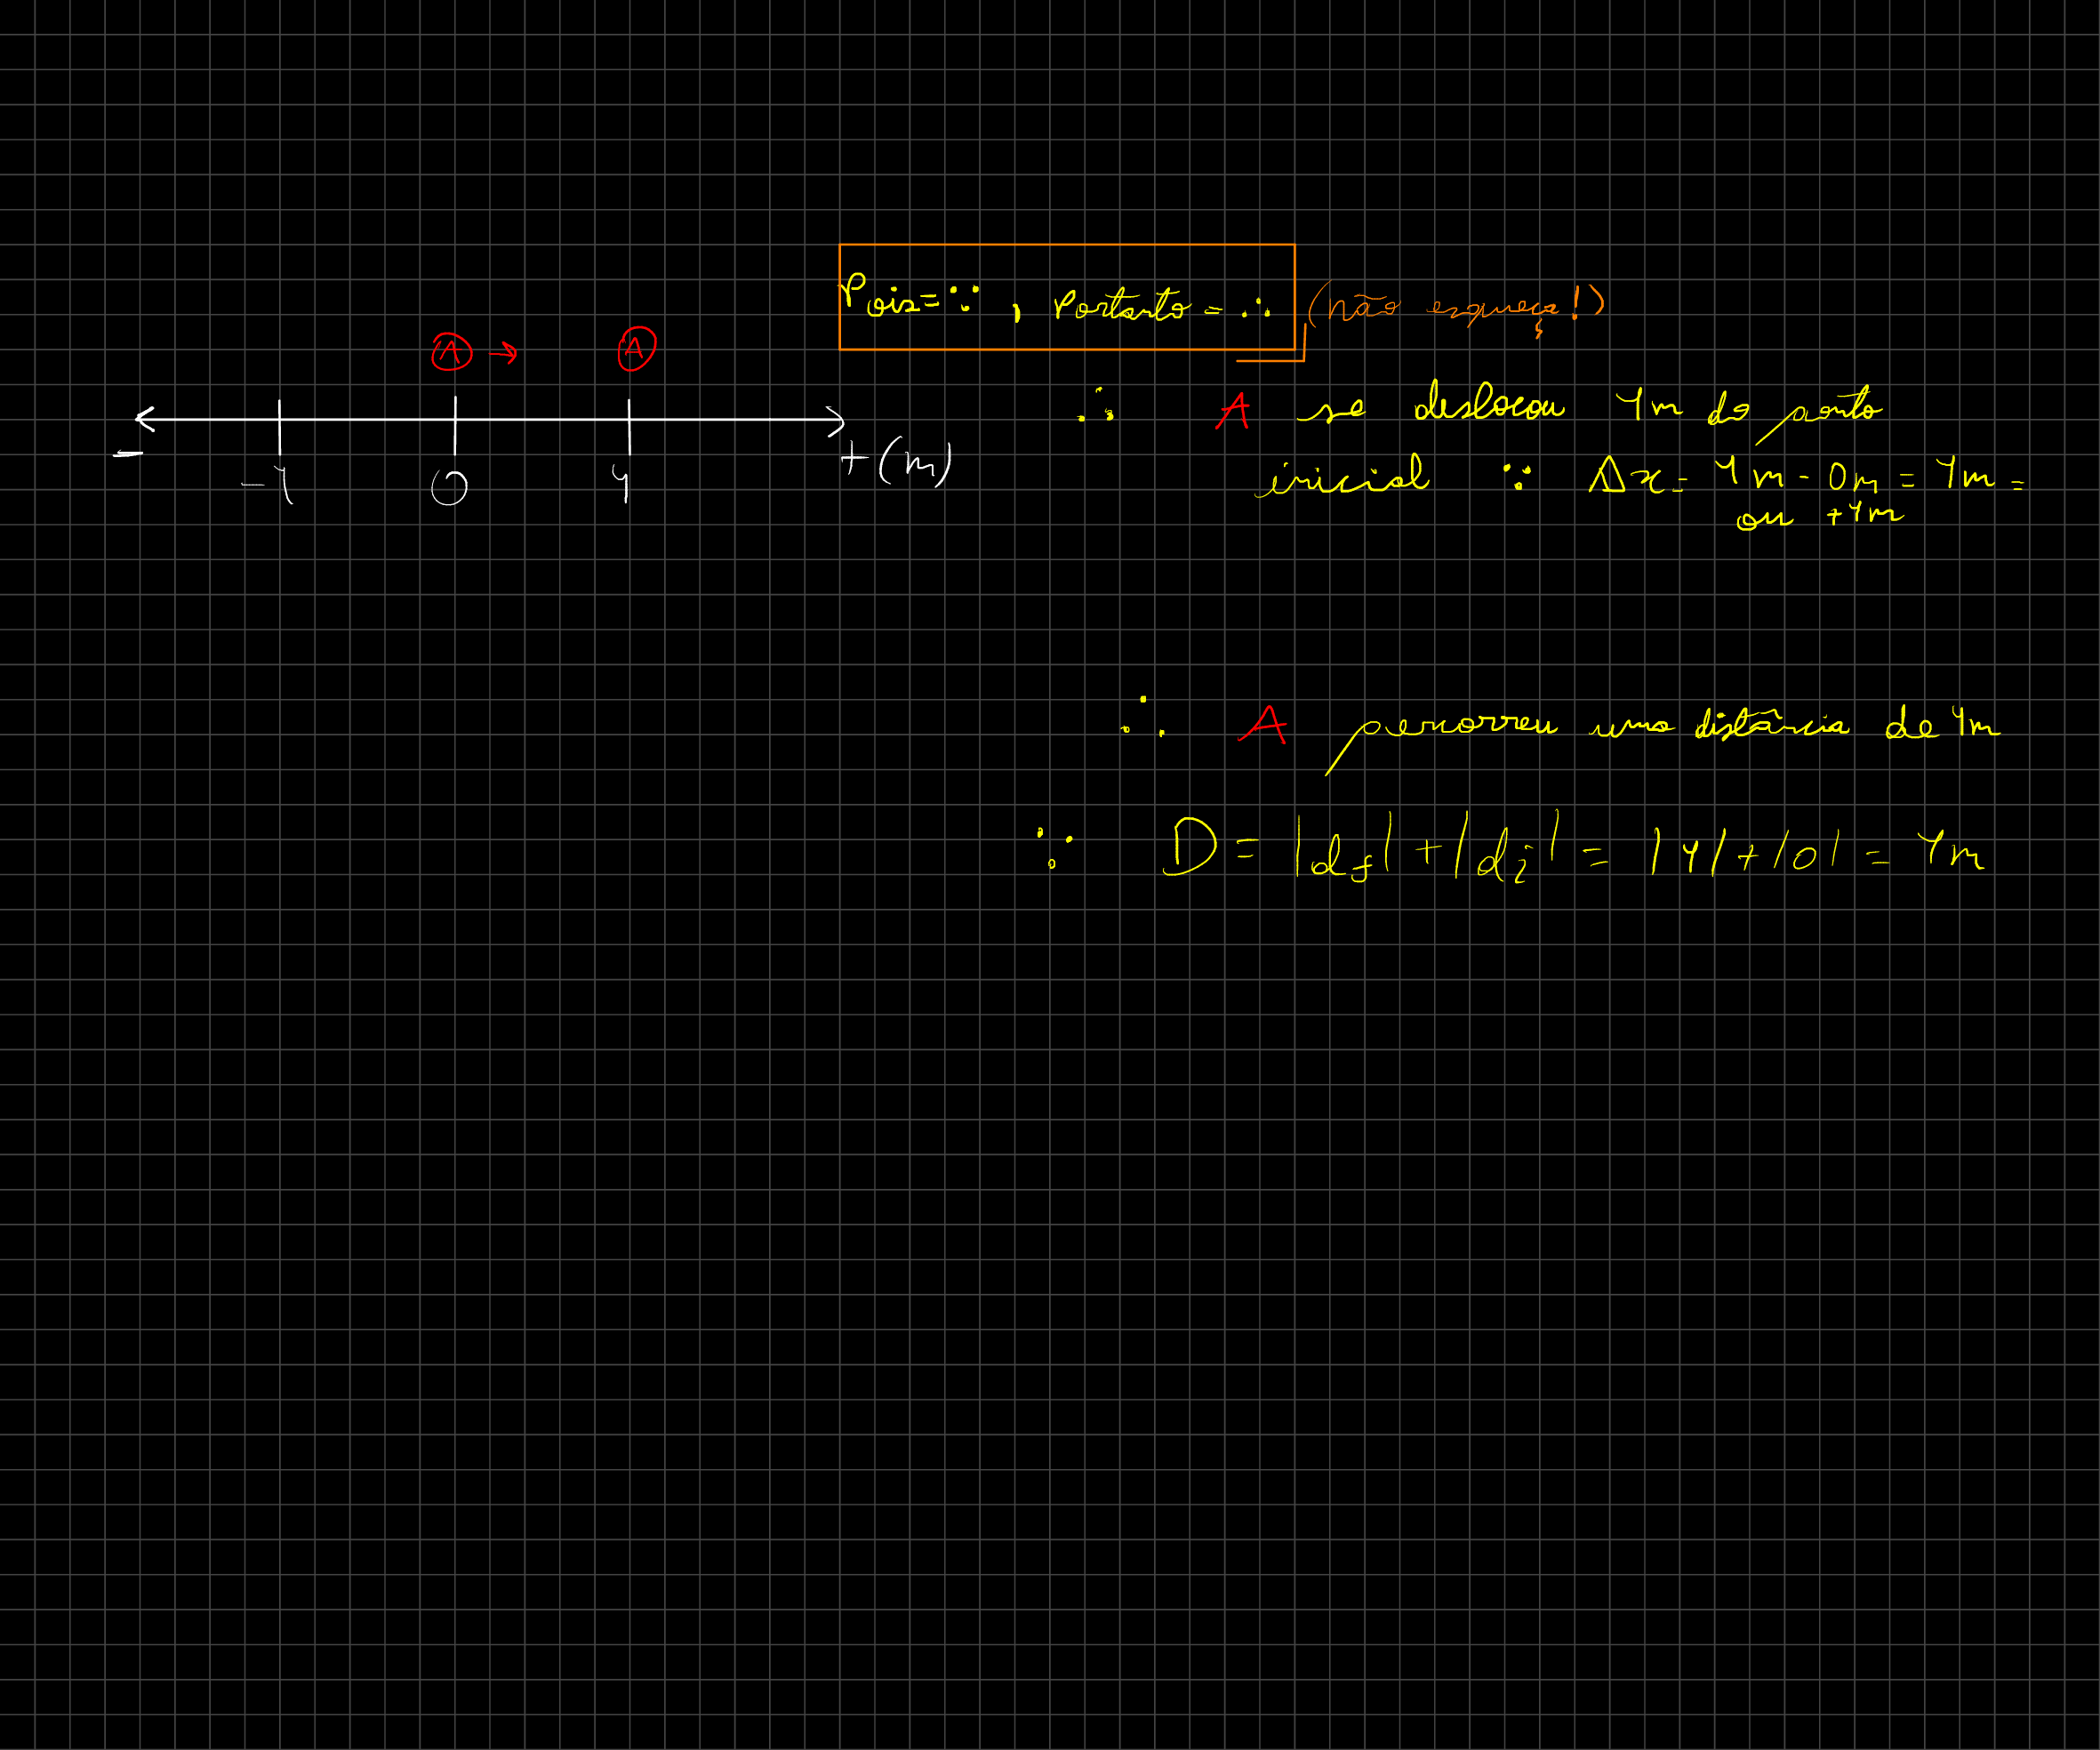 Pois=∵, Portanto=∴ (não esqueça!)
Ⓐ → Ⓐ
- -4 0 4 +(m)
∴ A se deslocou 4m do ponto
inicial ∵ Δx= 4m - 0m = 4m =
ou +4m
∴ A percorreu uma distância de 4m
∵ D = |df| + |di| = |4| + |0| = 4m